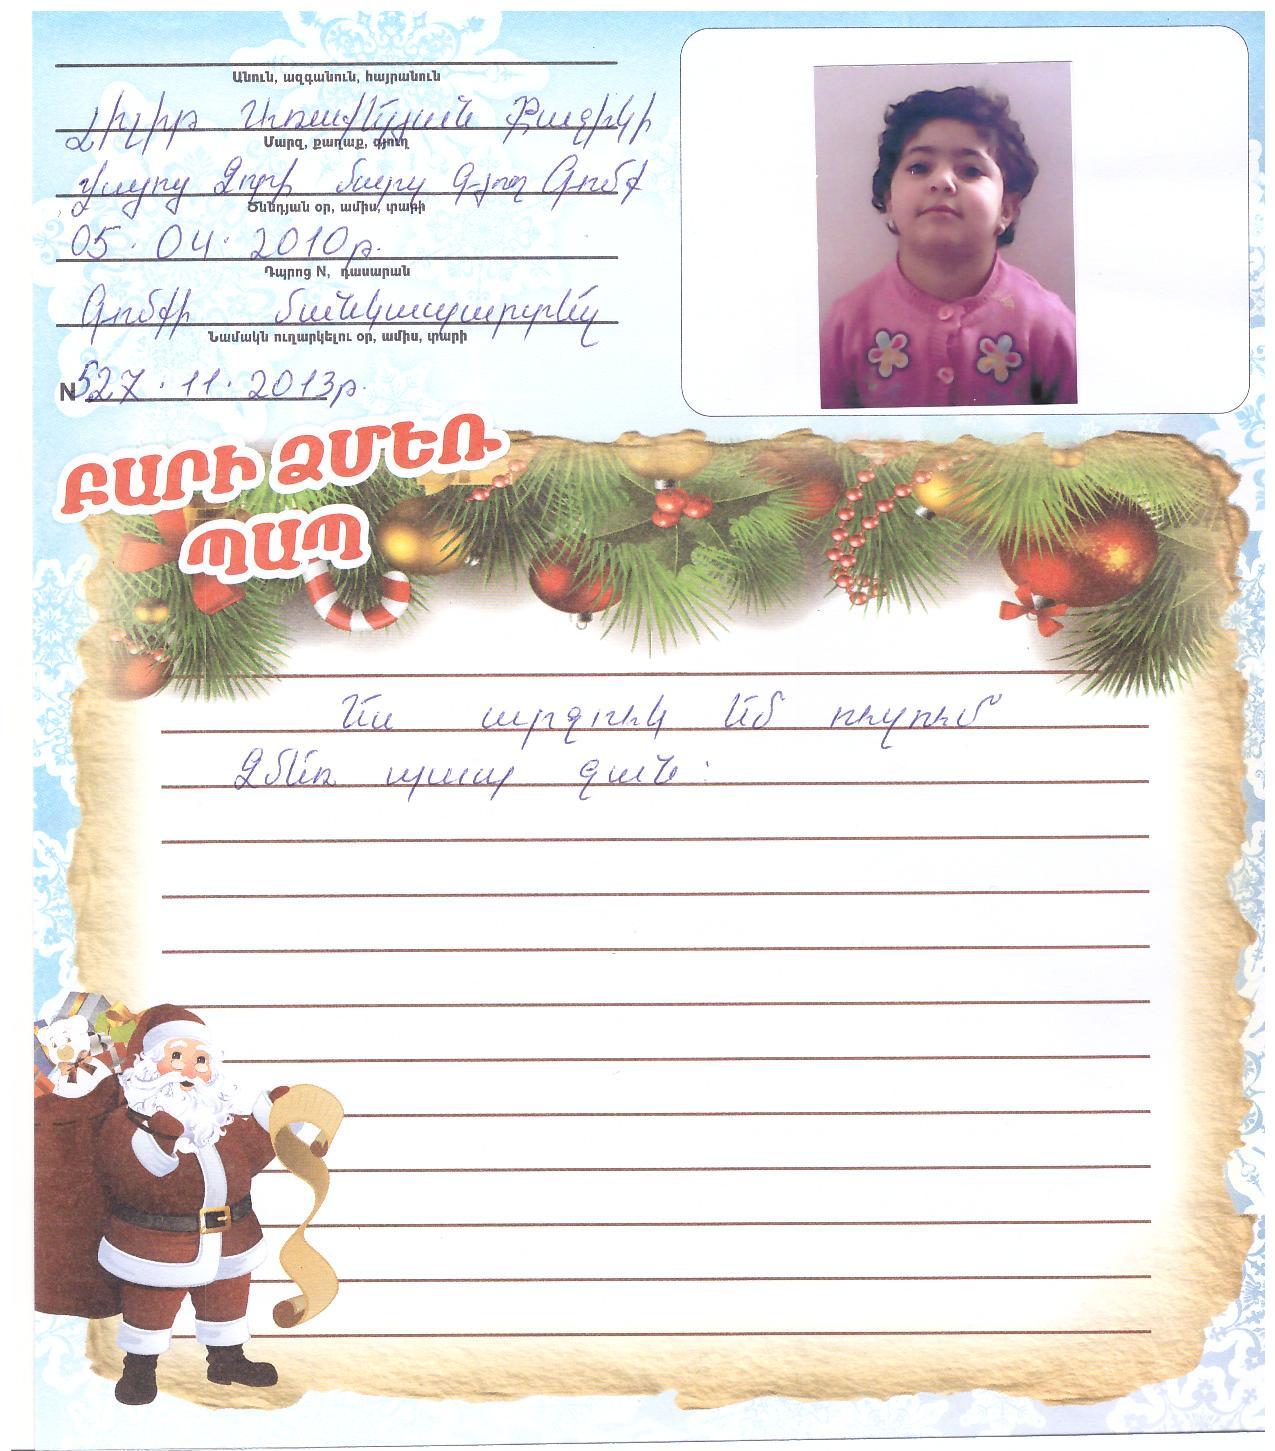 Անուն, ազգանուն, հայրանուն
Լիլիթ Առաքելյան Գագիկի
Մարզ, քաղաք, գյուղ
Վայոց Ձորի մարզ Գյուղ Գոմք
Ծննդյան օր, ամիս, տարի
05.04.2010թ.
Դպրոց N, դասարան
Գոմքի մանկապարտեզ
Նամակն ուղարկելու օր, ամիս, տարի
N 27.11.2013թ.
ԲԱՐԻ ՁՄԵՌ
ՊԱՊ
Ես արջուկ եմ ուզում
Ձմեռ պապ ջան: